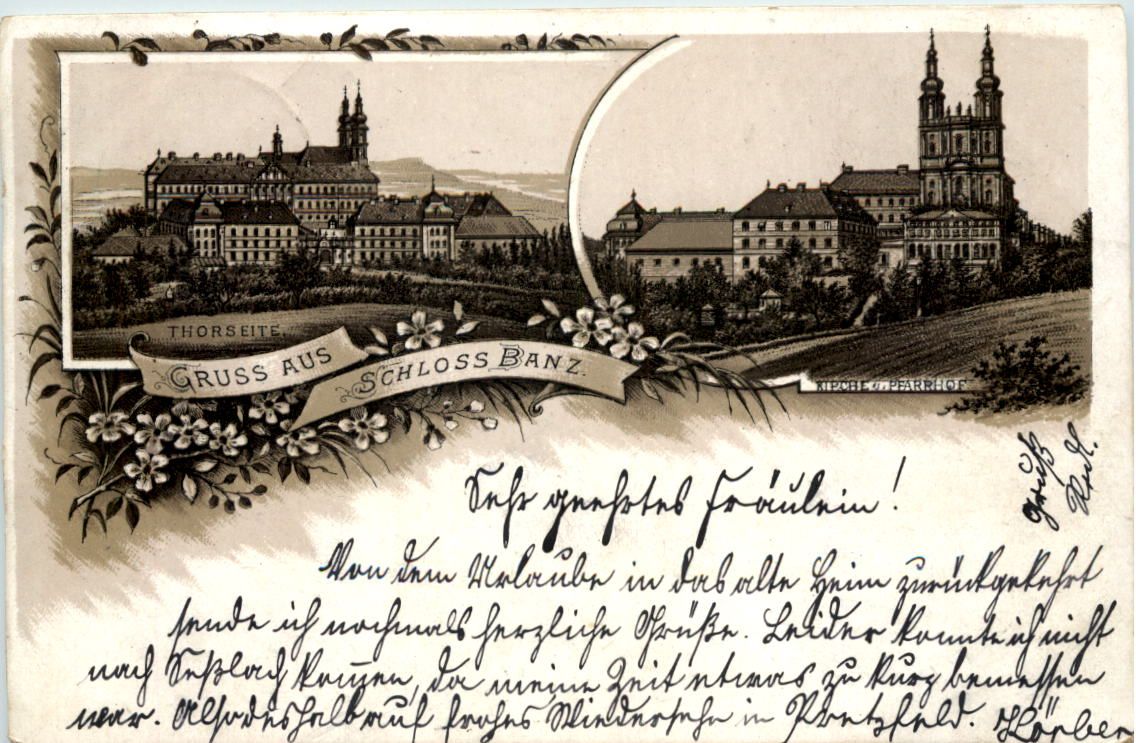 THORSEITE.
GRUSS AUS
SCHLOSS BANZ.
KIRCHE u. PFARRHOF
Gruß
Sehr geehrtes Fräulein!
Von dem Urlaube in das alte Heim zurückgekehrt
sende ich nochmals herzliche Grüße. Leider konnte ich nicht
nach Seßlach kom̅en, da meine Zeit etwas zu kurz bemessen
war. Also deshalb auf frohes Wiedersehn in Pretzfeld. Körber